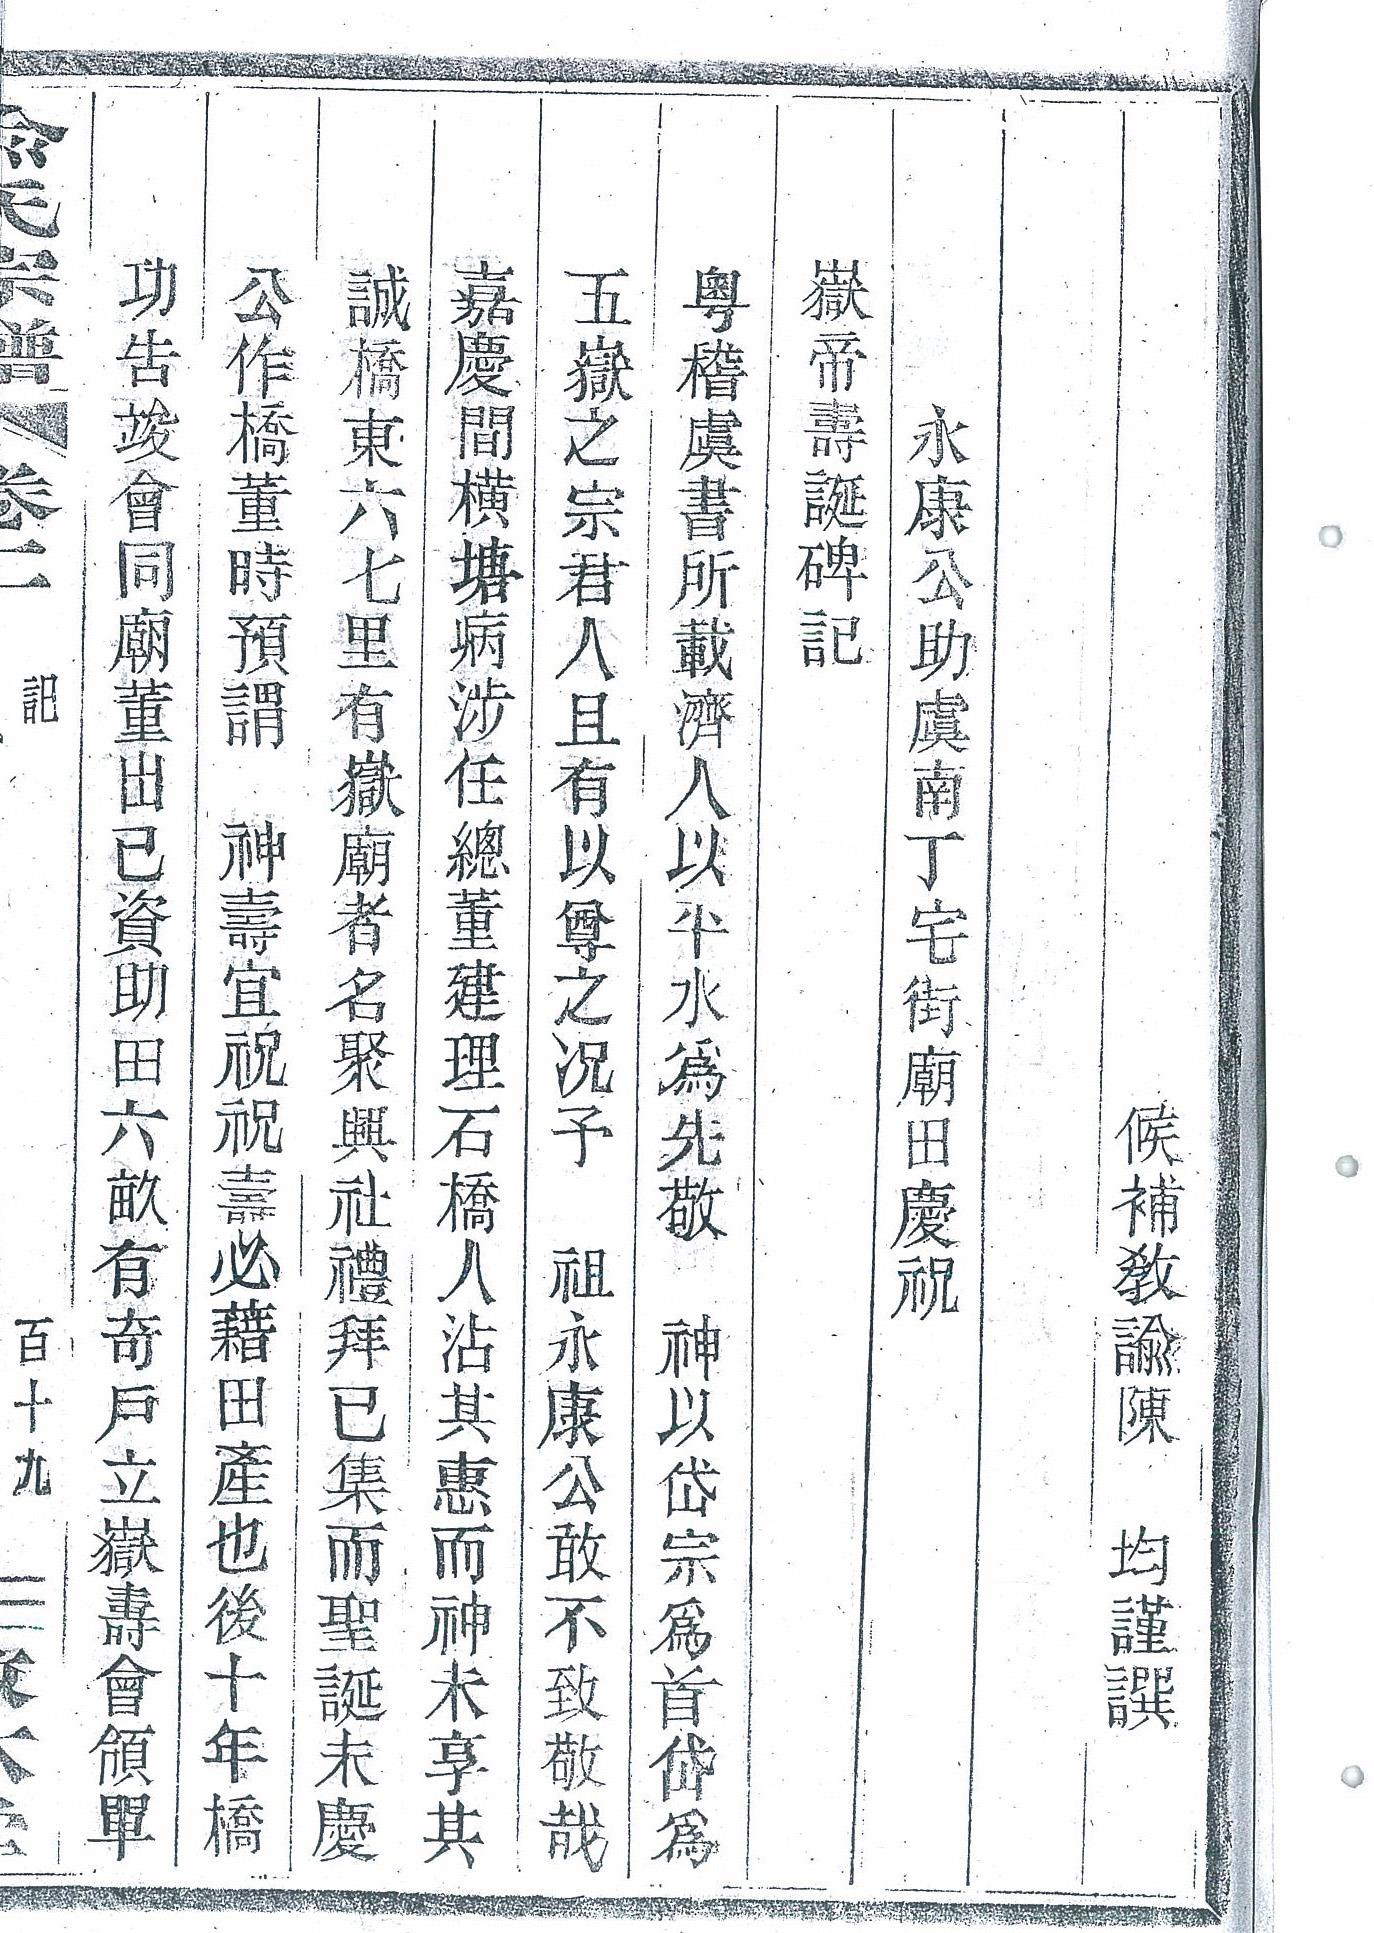 候補敎諭陳　均謹譔
永康公助虞南丁宅街廟田慶祝
嶽帝壽誕碑記
粤稽虞書所載濟人以平水爲先敬　神以岱宗爲首岱爲
五嶽之宗君人且有以尊之况予　祖永康公敢不致敬哉
嘉慶間橫塘病涉任總董建理石橋人沾其惠而神未享其
誠橋東六七里有嶽廟者名聚興社禮拜已集而聖誕未慶
公作橋董時預謂　神壽宜祝祝壽必藉田產也後十年橋
功告竣會同廟董出已資助田六畝有奇戶立嶽壽會頒單
俞氏宗譜　卷二　記　百十九